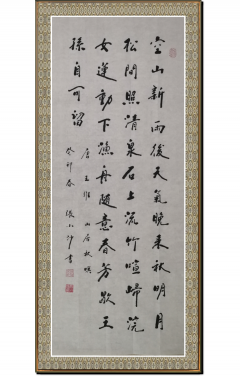 空山新雨後天氣晚来秋明月
松間照清泉石上流竹喧歸浣
女蓮動下漁舟隨意春芳歇王
孫自可留
唐王維 山居秋暝
癸卯春 張小
書